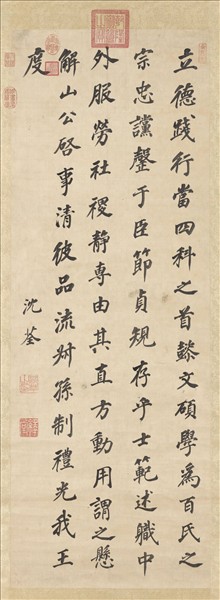 立德踐行當四科之首懿文碩學為百氏之
宗忠讜罄于臣節貞規存乎士範述職中
外服勞社稷靜專由其直方動用謂之懸
解山公啓事清彼品流叔孫制禮光我王
度
沈荃